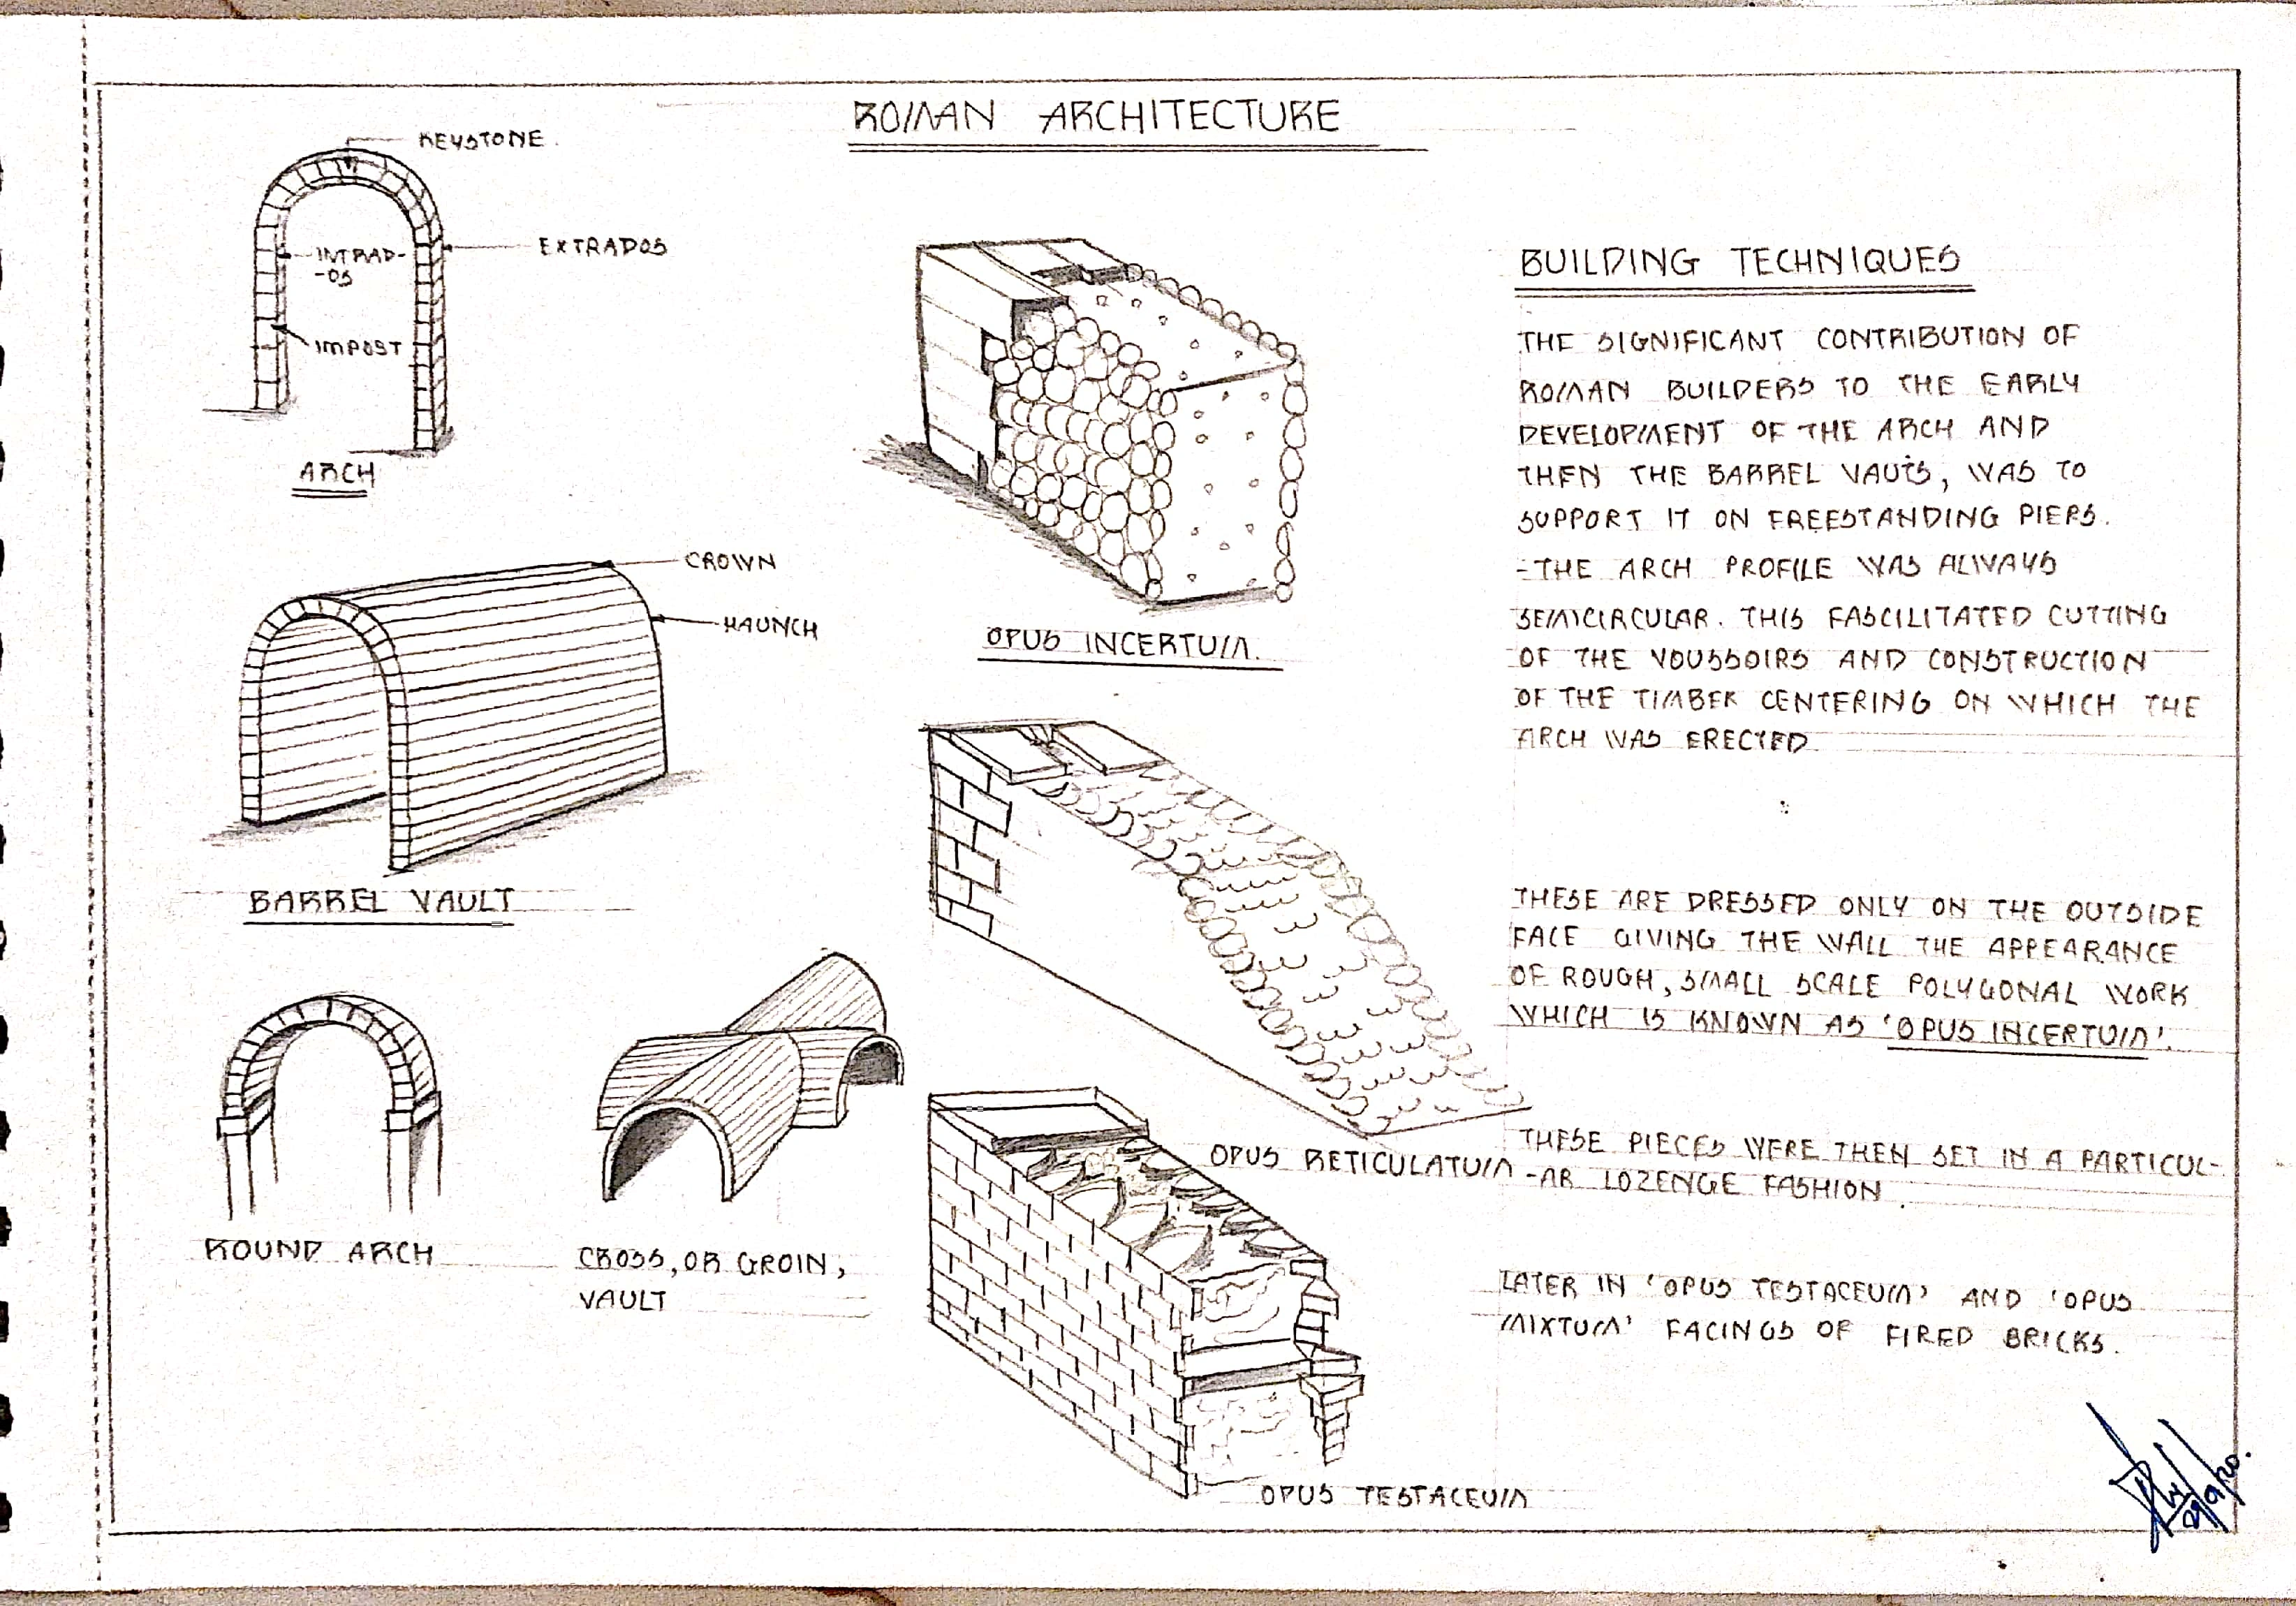 ROMAN ARCHITECTURE
KEYSTONE
INTRAD-
-OS
EXTRADOS
IMPOST
ARCH
CROWN
HAUNCH
BARREL VAULT
ROUND ARCH
CROSS, OR GROIN,
VAULT
OPUS INCERTUM.
OPUS RETICULATUM
OPUS TESTACEUM
BUILDING TECHNIQUES
THE SIGNIFICANT CONTRIBUTION OF
ROMAN BUILDERS TO THE EARLY
DEVELOPMENT OF THE ARCH AND
THEN THE BARREL VAUTS, WAS TO
SUPPORT IT ON FREESTANDING PIERS.
-THE ARCH PROFILE WAS ALWAYS
SEMICIRCULAR. THIS FASCILITATED CUTTING
OF THE VOUSSOIRS AND CONSTRUCTION
OF THE TIMBER CENTERING ON WHICH THE
ARCH WAS ERECTED.
THESE ARE DRESSED ONLY ON THE OUTSIDE
FACE GIVING THE WALL THE APPEARANCE
OF ROUGH, SMALL SCALE POLYGONAL WORK
WHICH IS KNOWN AS 'OPUS INCERTUM'.
THESE PIECES WERE THEN SET IN A PARTICUL-
-AR LOZENGE FASHION
LATER IN 'OPUS TESTACEUM' AND 'OPUS
MIXTUM' FACINGS OF FIRED BRICKS.